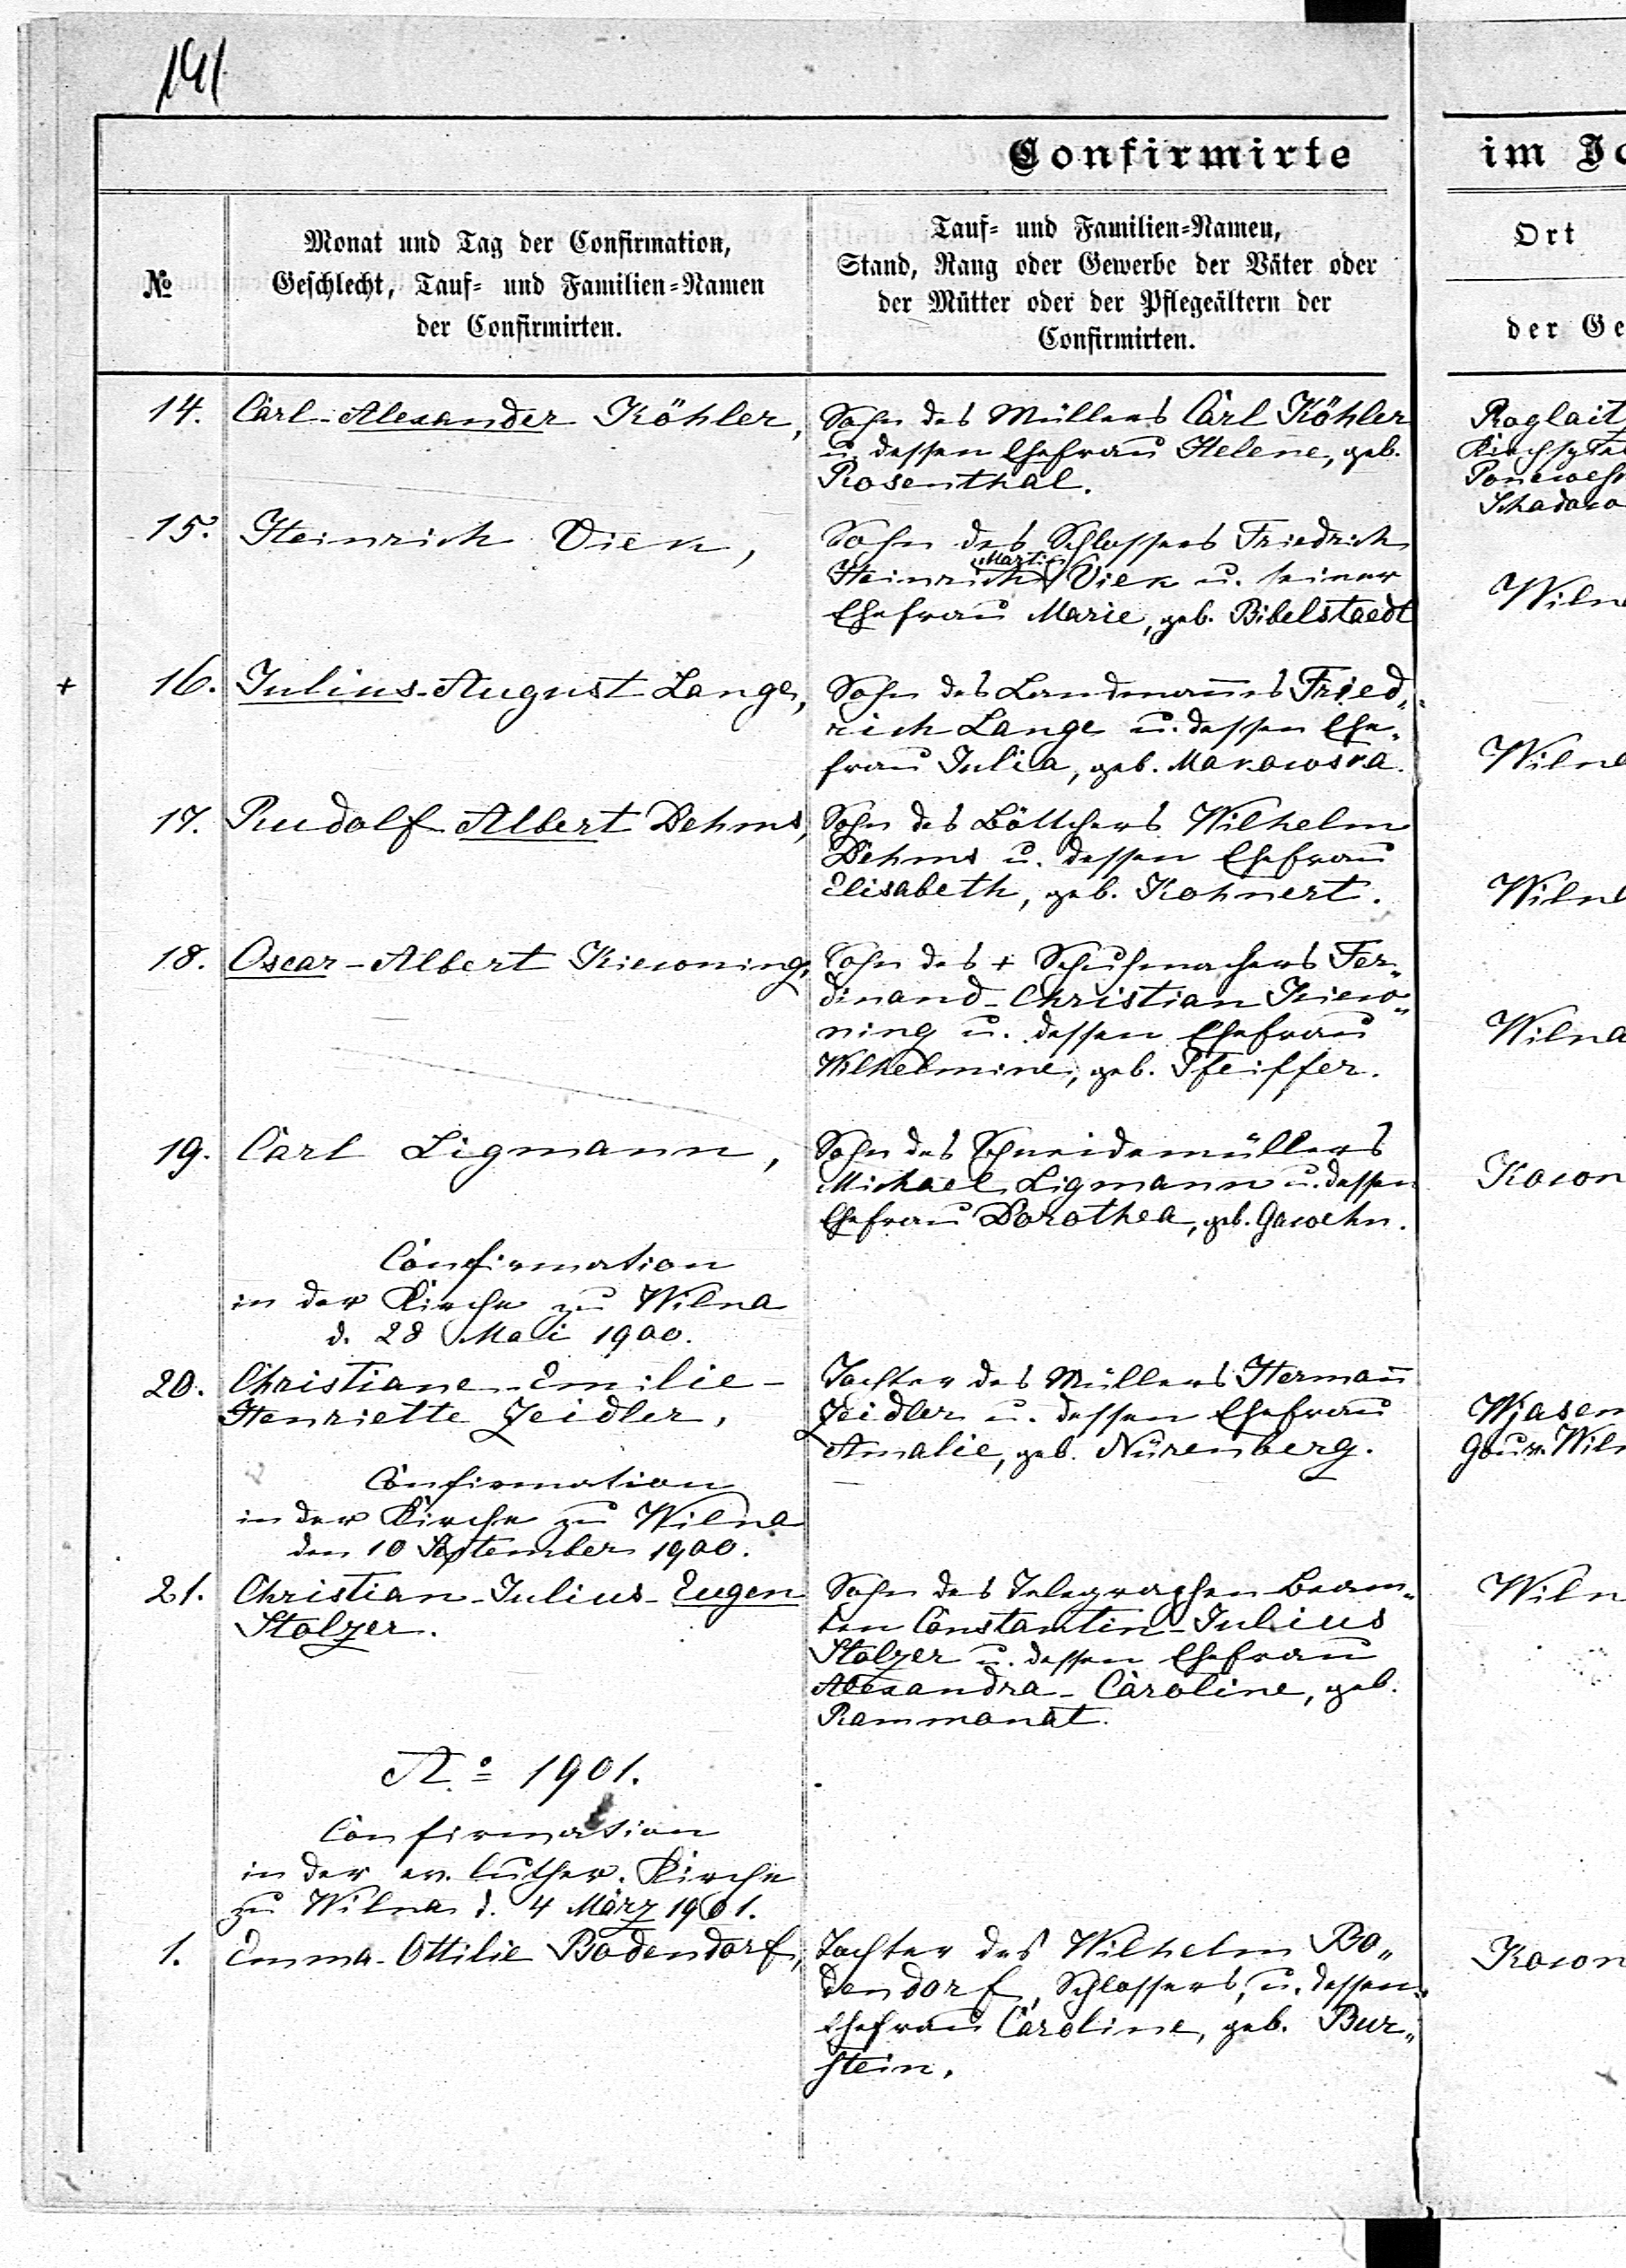 141
Confirmirte
№
Monat und Tag der Confirmation,
Geschlecht, Tauf- und Familien-Namen
der Confirmirten.
Tauf- und Familien-Namen,
Stand, Rang oder Gewerbe der Väter oder
der Mütter oder der Pflegeältern der
Confirmirten.
im
Ort
der Ge
14. Carl-Alexander Köhler,
Sohn des Müllers Carl Köhler
u. dessen Ehefrau Helene, geb.
Rosenthal.
15. Heinrich Viek,
Sohn des Schlossers Friedrich
Martin
Heinrich Viek u. seiner
Ehefrau Marie, geb. Bibelstaedt
Wilna
+ 16. Julius-August Lange,
Sohn des Landmanns Fried„
rich Lange u. dessen Ehe„
frau Julia, geb. Makowska.
Wilna
17. Rudolf Albert Dehms,
Sohn des Böttchers Wilhelm
Dehms u. dessen Ehefrau
Elisabeth, geb. Kohnert.
Wilna
18. Oscar-Albert Kiewning,
Sohn des + Schuhmachers Fer„
dinand-Christian Kiew„
ning u. dessen Ehefrau
Wilhelmine, geb. Pfeiffer.
Wilna
19. Carl Ligmann,
Sohn des Schneidemüllers
Michael Ligmann u. dessen
Ehefrau Dorothea, geb. Gawehn.
Kown
Confirmation
in der Kirche zu Wilna
d. 28 Mai 1900.
20. Christiane-Emilie-
Henriette Zeidler,
Tochter des Müllers Hermann
Zeidler u. dessen Ehefrau
Amalie, geb. Nürenberg.
Wjasen
Gouv. Wiln
Confirmation
in der Kirche zu Wilna
den 10 September 1900.
21. Christian-Julius-Eugen
Stolzer.
Sohn des Telegraphen Beam„
ten Constantin-Julius
Stolzer u. dessen Ehefrau
Alexandra-Caroline, geb.
Rammonat.
Wiln
A.º 1901.
Confirmation
in der ev. luther. Kirche
zu Wilna d. 4 März 1901.
1. Emma-Ottilie Bodendorf,
Tochter des Wilhelm Bo„
dendorf, Schlossers, u. dessen
Ehefrau Caroline, geb. Bur„
stein.
Kown